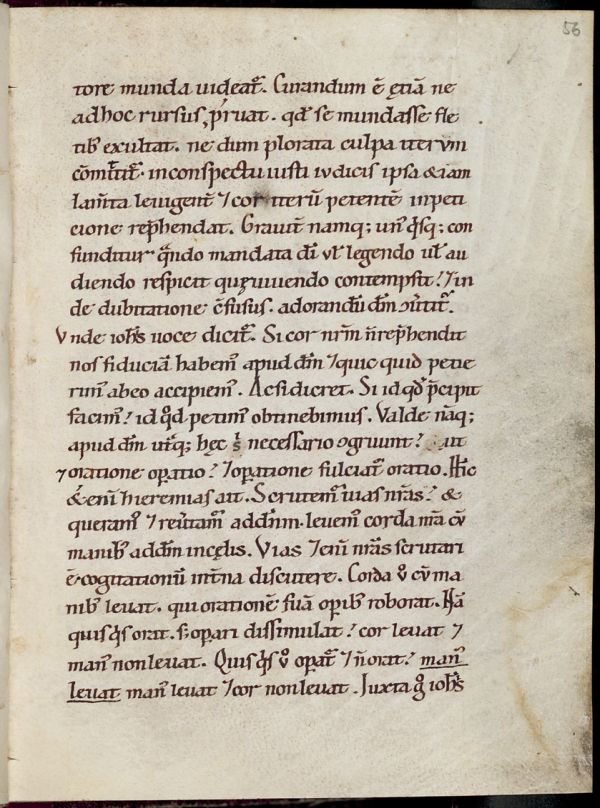 56
tore munda uideat᷑. Curandum ē ętiā ne
ad hoc rursus p̄ruat. qd̄ se mundasse fle
tib; exultat. ne dum plorata culpa iterum
cōmittit᷑. in conspectu iusti iudicis ipsa & iam
lam̄ta leuigent᷑ ⁊ cor iterū petentē in peti
cione rep̄hendat. Grauit᷑ namq; un᷒ q̄sq; con
funditur q̄ndo mandata dī ul̄ legendo ul̄ au
diendo respicit quę uiuendo contempsit! ⁊ in
de dubitatione c̄fusus. adorandū dn̄m ɔu͛tit᷑.
Vnde ioh̄s uoce dicit᷑. Si cor nr̄m n̄ rep̄hendit
nos fiduciā habem᷒ apud dm̄ ⁊ quic quid petie
rim᷒ ab eo accipiem᷒. Ac si dicret. Si id qd̄ p̄cipit
facim᷒! id qd̄ petim᷒ obtinebimus. Valde nāq;
apud dm̄ ut͛q; hęc s̄ necessario ɔgruunt! ut
⁊ oratione oꝑatio! ⁊ oꝑatione fulciat᷑ oratio. Hīc
& eni͞ hieremias ait. Scrutem᷒ uias nr̄as! &
queram᷒ ⁊ reu͛tam᷑ ad dn̄m. leuem᷒ corda nr̄a cū
manib; ad dn̄m in cęlis. Vias ⁊eni͞ nr̄as scrutari
ē cogitationū int͛na discutere. Corda u͛o cū ma
nib; leuat. qui orationē suā oꝑib; roborat. Nā
quisq̄s orat. s; oꝑari dissimulat! cor leuat ⁊
man᷒ non leuat. Quisq̄s u͛o oꝑat᷑ ⁊ n̄ orat! man᷒
leuat man᷒ leuat ⁊ cor non leuat. Juxta g͛ ioh̄s